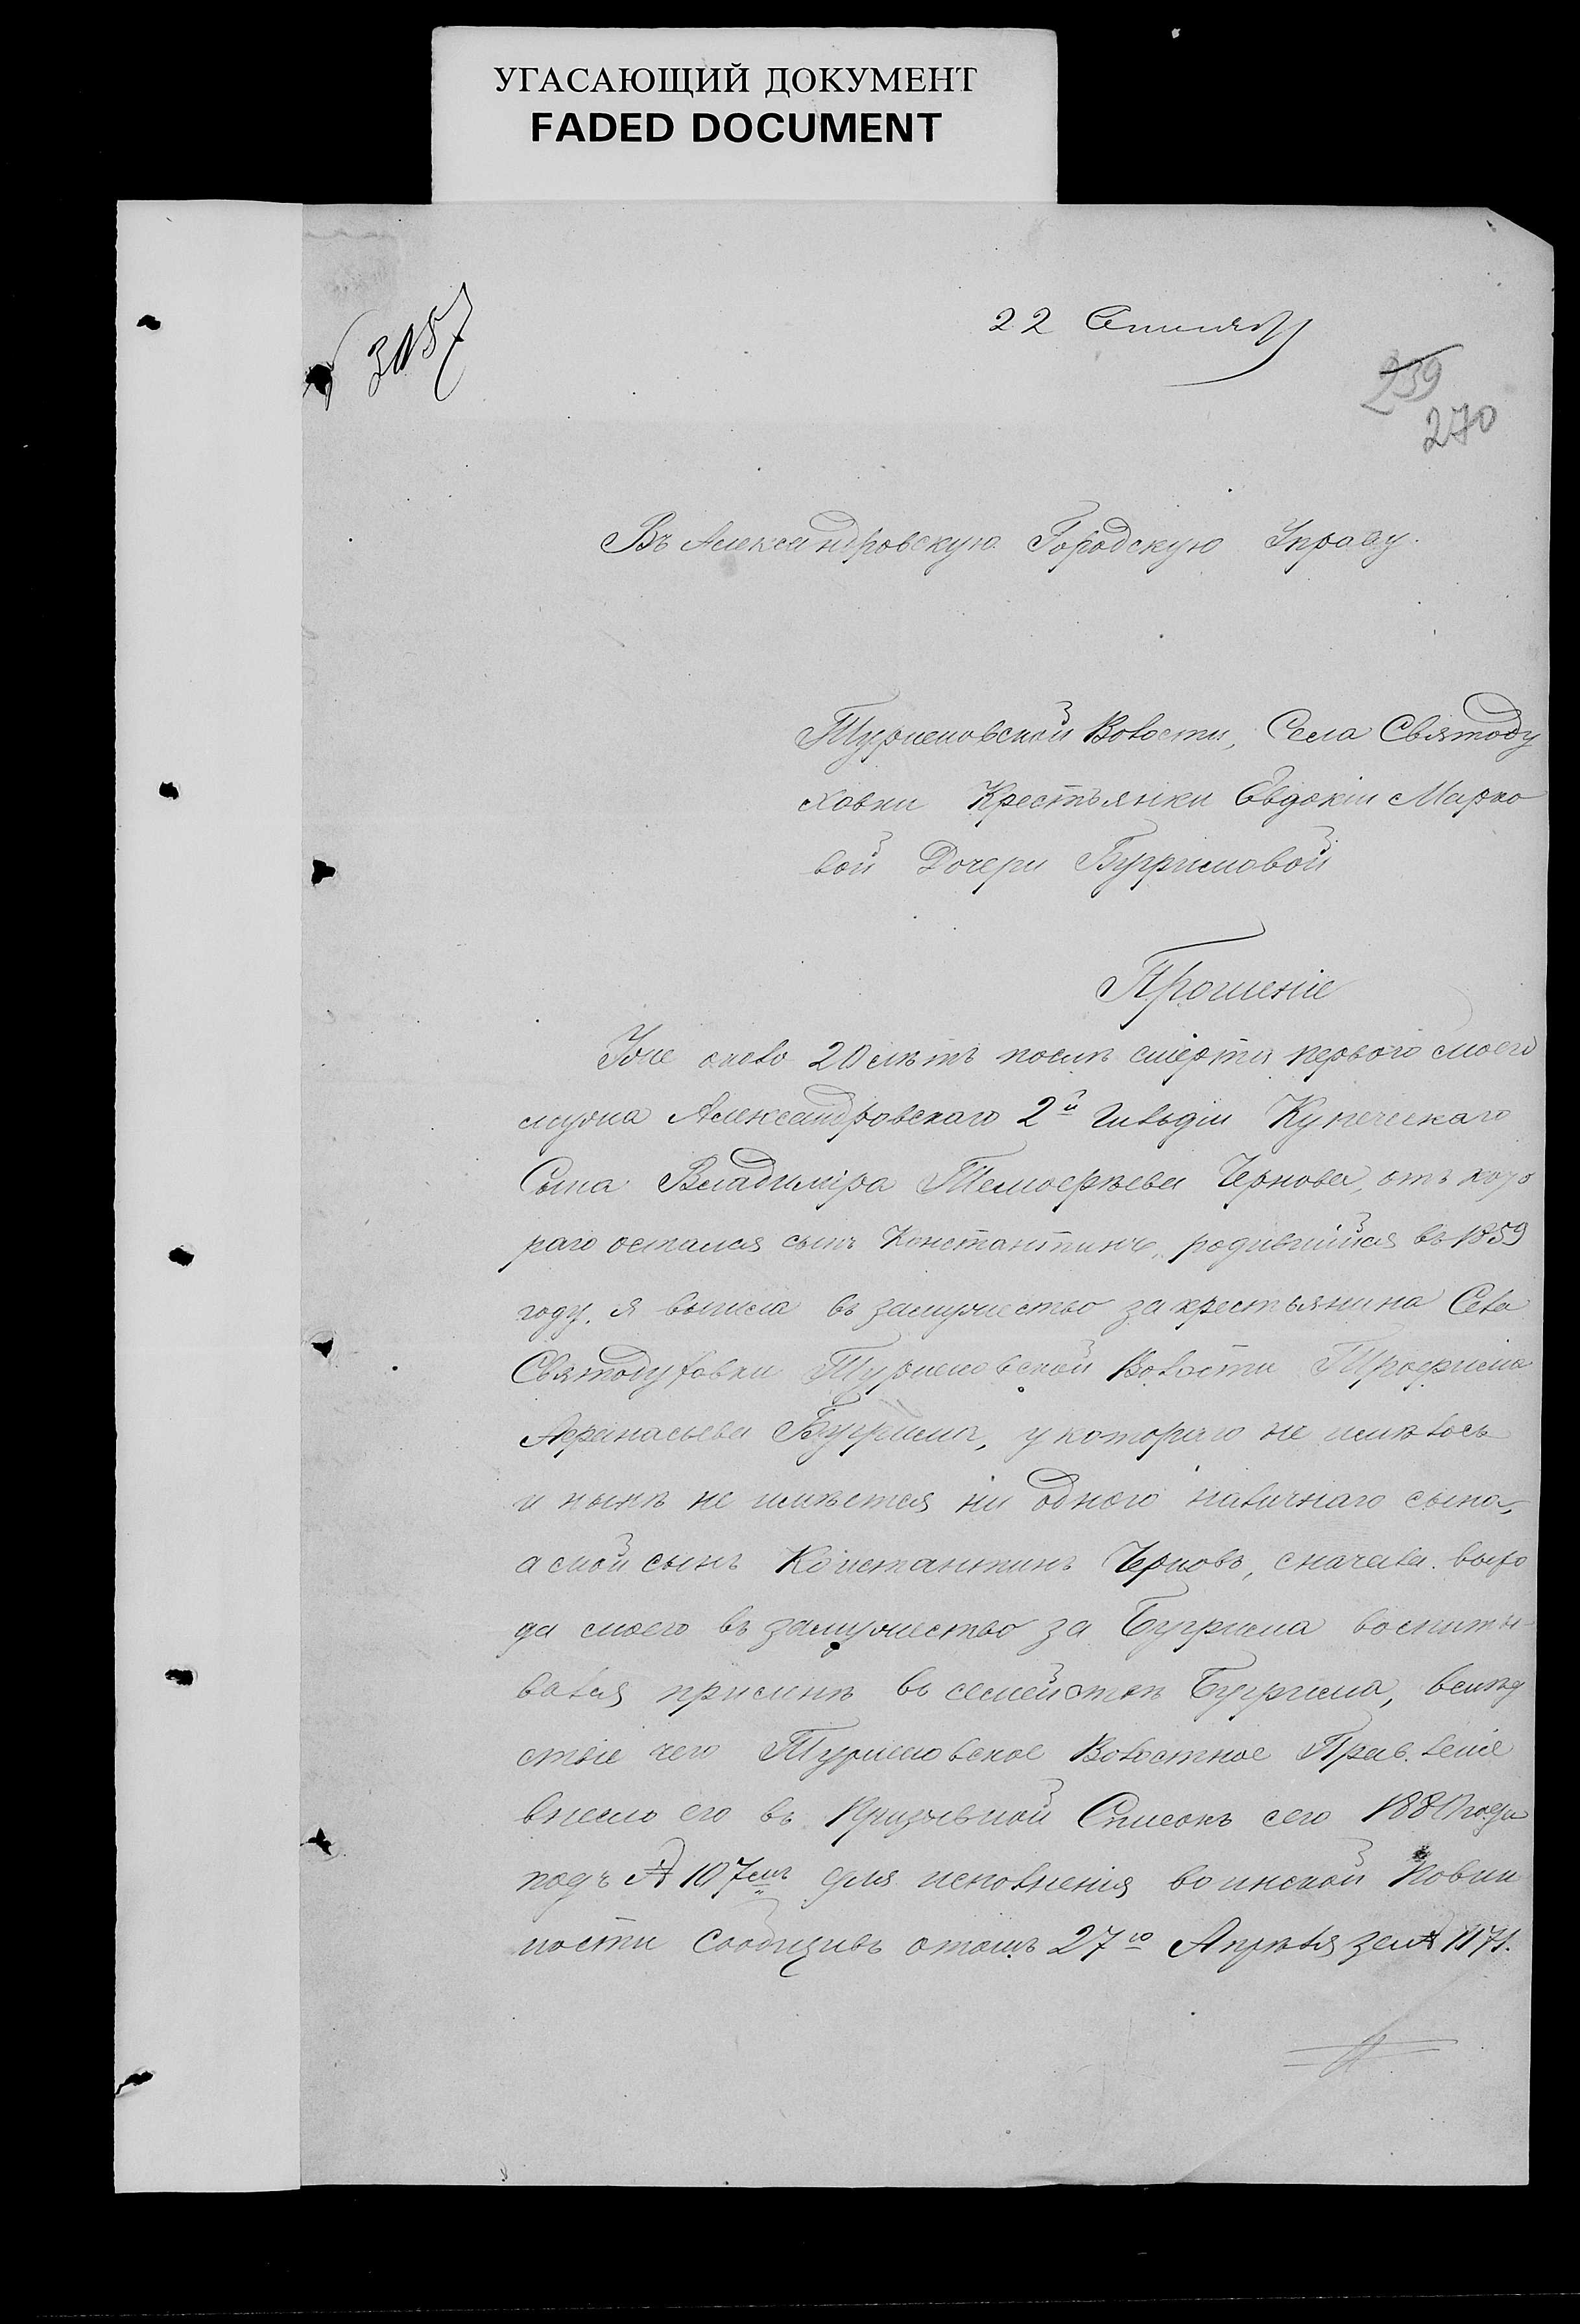 УГАСАЮЩИЙ ДОКУМЕНТ
FADED DOCUMENT
22 Сентября
239
270
Въ Александровскую Городскую Управу.
Туркеновской Волости, Села Святоду
ховки Крестьянки Евдокіи Марко
вой Дочери Бугримовой
Прошеніе
Уже около 20 лѣтъ послѣ смерти перваго моего
мужа Александровскаго 2й Гильдіи Купеческаго
Сына Владиміра Чернова, отъ кото
раго остался сынъ Константинъ, родившійся въ 1859
году, я вышла въ замужество за крестьянина Села
Святодуховки Туркеновской Волости Трофима
Афанасьева Бугрима, у котораго не имѣлось
и нынѣ не имѣется ни одного наличнаго сына,
а мой сынъ Константинъ Черновъ, сначала выхо
да моего въ замужество за Бугрима воспиты-
вался при мнѣ въ семействѣ Бугрима, вслѣд
ствіе чего Туркеновское Волостное Правленіе
внесло его въ Призывной Списокъ сего 1880 года
подъ № 107мъ для исполненія воинской Повин
ности сообщивъ о томъ 27го Апрѣля за № 1171.